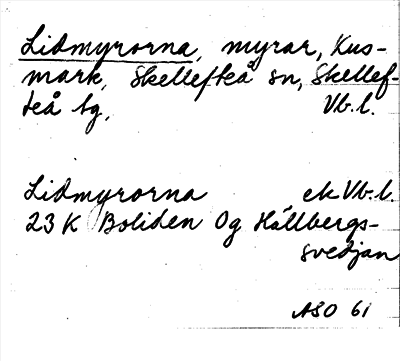 Lidmyrorna, myrar, Kus-
mark, Skellefteå sn, Skellef-
teå tg, Vb.l.
Lidmyrorna, ek Vb.l.
23 K Boliden Og Hällbergs-
svedjan
ASO 61